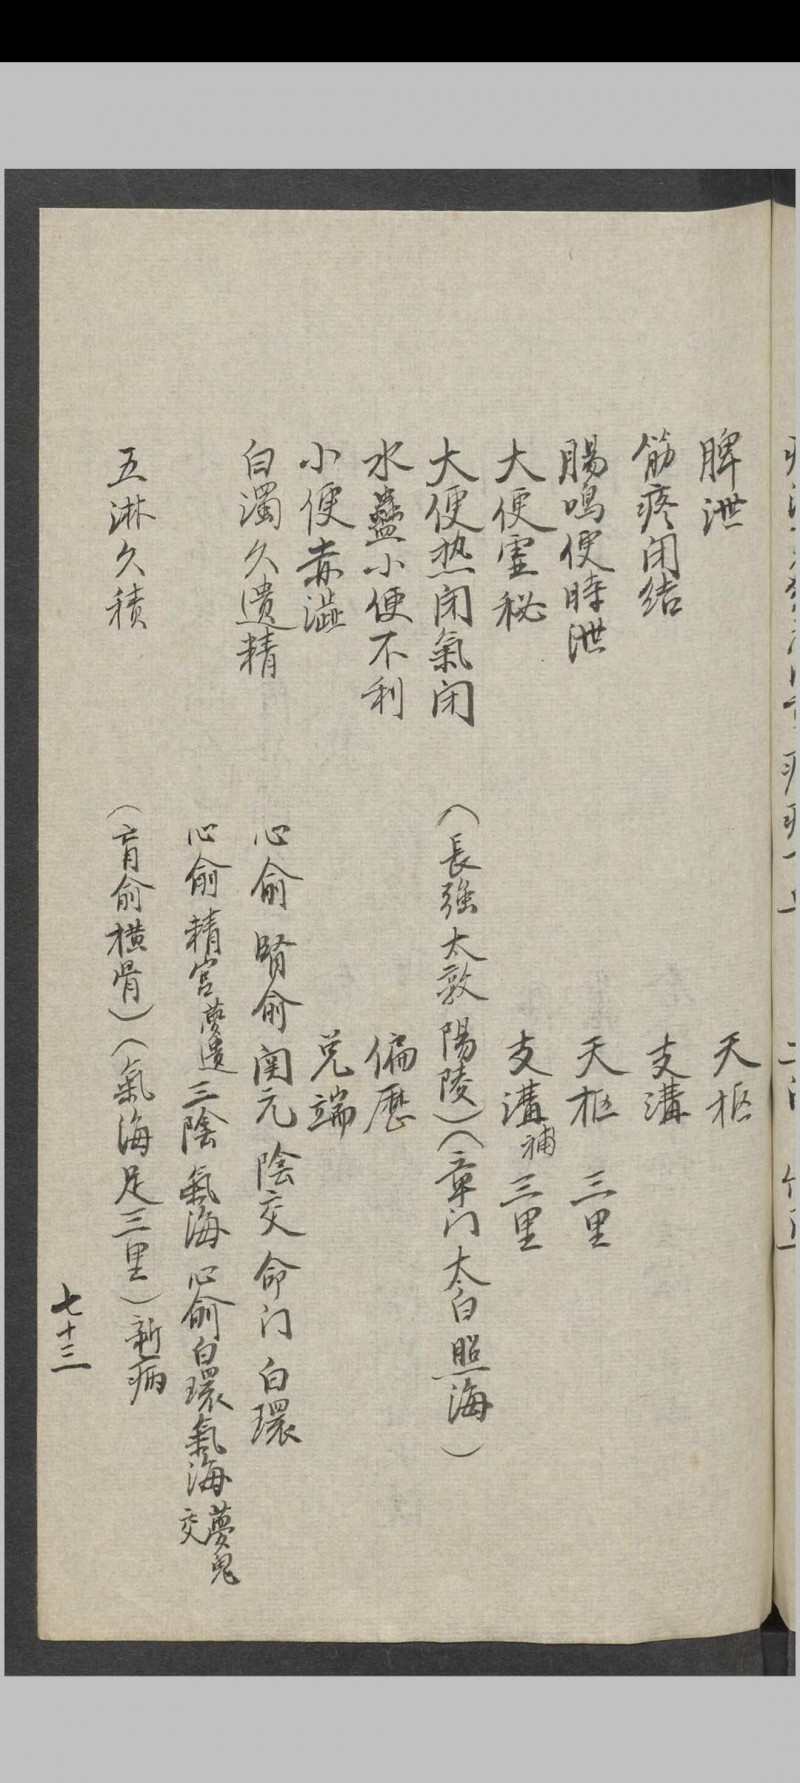 脾泄 天枢
筋疼闭结 支溝
腸鳴便時泄 天枢 三里
大便虚秘 支溝補 三里
大便热闭氣闭 （長強太敦陽陵）（章门太白照海）
水蠱小便不利 偏歷
小便赤澁 兑端
白濁久遺精 心俞腎俞関元陰交命门白環
心俞精宫夢遺三陰氣海心俞白環氣海夢鬼交
五淋久積 （肓俞横骨）（氣海足三里）新病
七十三